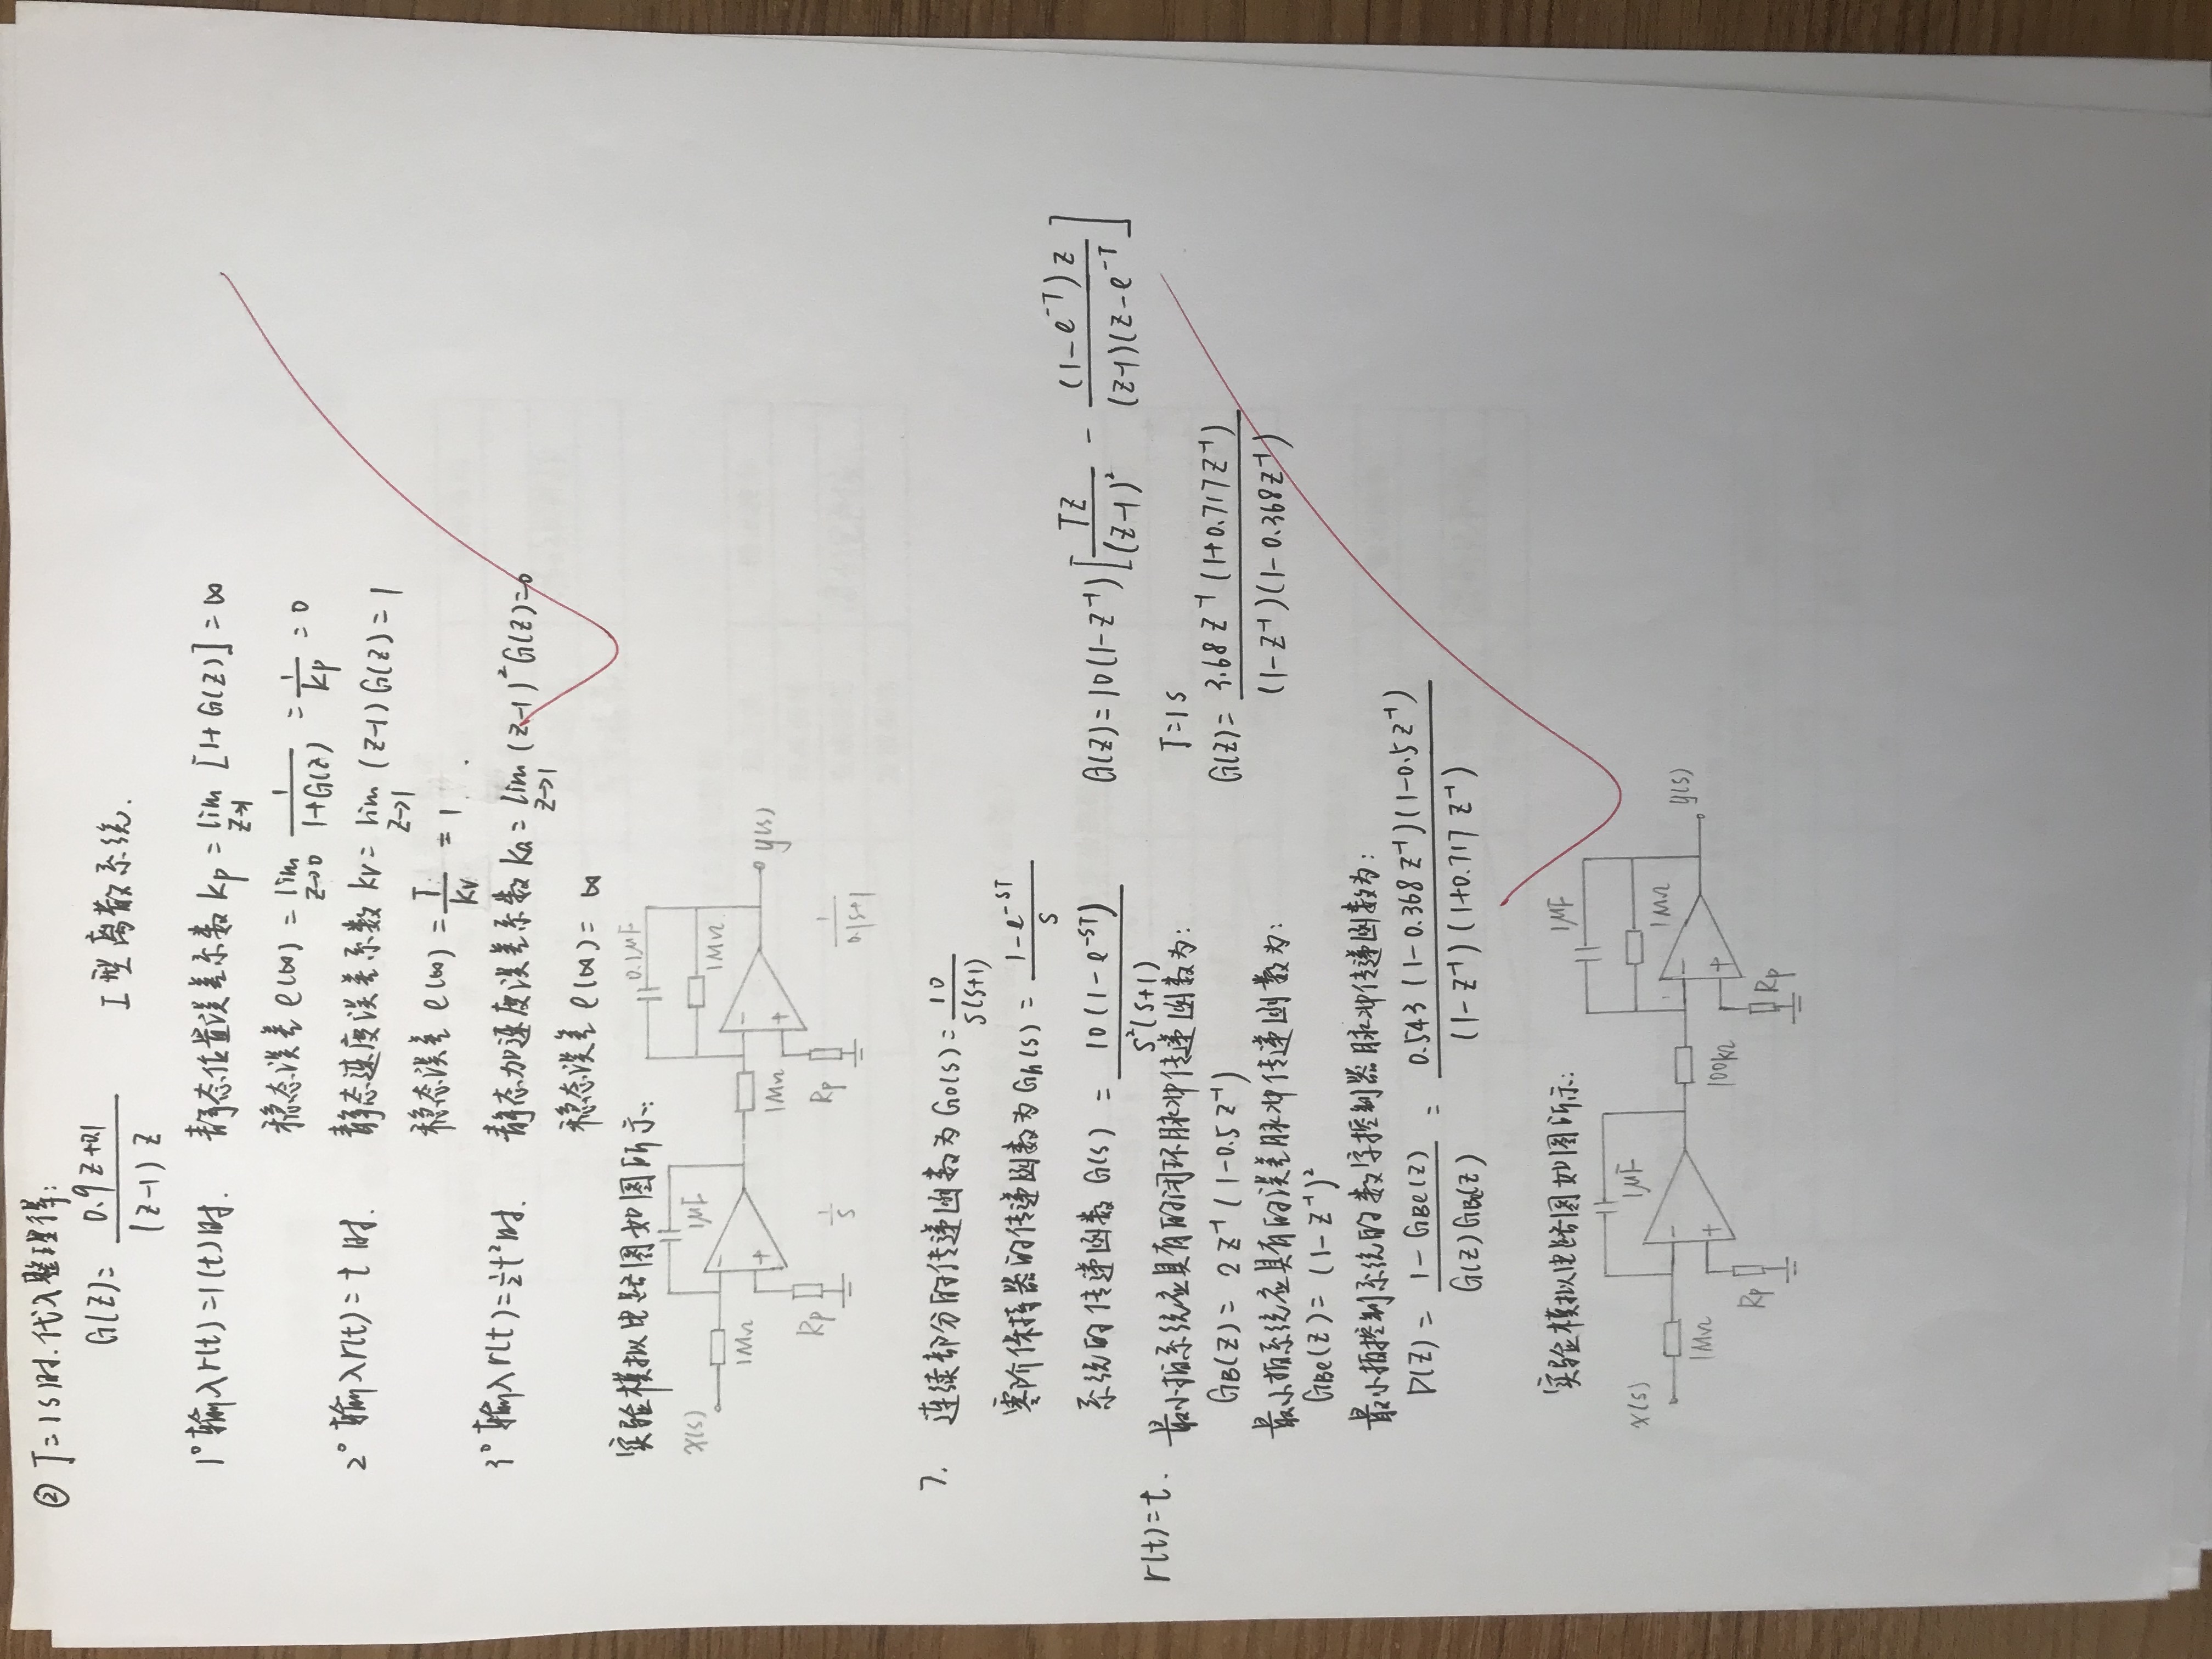 ② T=1s时.代入整理得:
G(Z)= \frac{0.9Z+0.1}{(Z-1)Z} I型离散系统.
1° 输入r(t)=1(t)时. 静态位置误差系数 Kp = \lim_{Z→1} [1+G(Z)] = ∞
稳态误差 e(∞) = \lim_{Z→0} \frac{1}{1+G(Z)} = \frac{1}{Kp} = 0
2° 输入r(t)= t 时. 静态速度误差系数 Kv = \lim_{Z→1} (Z-1)G(Z) = 1
稳态误差 e(∞) = \frac{T}{Kv} = 1.
3° 输入r(t)=\frac{1}{2}t²时. 静态加速度误差系数 Ka = \lim_{Z→1} (Z-1)²G(Z)=0
稳态误差 e(∞) = ∞
实验模拟电路图如图所示:
0.1μF
X(s) 1μF 1MΩ
1MΩ - + 1MΩ - + y(s)
Rp \frac{1}{s} Rp \frac{1}{0.1s+1}
7. 连续部分的传递函数为 G0(s) = \frac{10}{s(s+1)}
零阶保持器的传递函数为 Gh(s) = \frac{1-e^{-sT}}{s}
系统的传递函数 G(s) = \frac{10(1-e^{-sT})}{s²(s+1)} G(Z)=10(1-Z^{-1})[\frac{TZ}{(Z-1)²} - \frac{(1-e^{-T})Z}{(Z-1)(Z-e^{-T}}]
r(t)=t. 最小拍系统应具有的闭环脉冲传递函数为: T=1s
GB(Z) = 2Z^{-1}(1-0.5Z^{-1}) G(Z)= \frac{3.68Z^{-1}(1+0.717Z^{-1})}{(1-Z^{-1})(1-0.368Z^{-1})}
最小拍系统应具有的误差脉冲传递函数为:
GBe(Z) = (1-Z^{-1})²
最小拍控制系统的数字控制器脉冲传递函数为:
D(Z) = \frac{1-GBe(Z)}{G(Z)GBe(Z)} = \frac{0.543(1-0.368Z^{-1})(1-0.5Z^{-1})}{(1-Z^{-1})(1+0.717Z^{-1})}
实验模拟电路图如图所示:
1μF
X(s) 1μF 1MΩ
1MΩ - + 100kΩ - + y(s)
Rp Rp